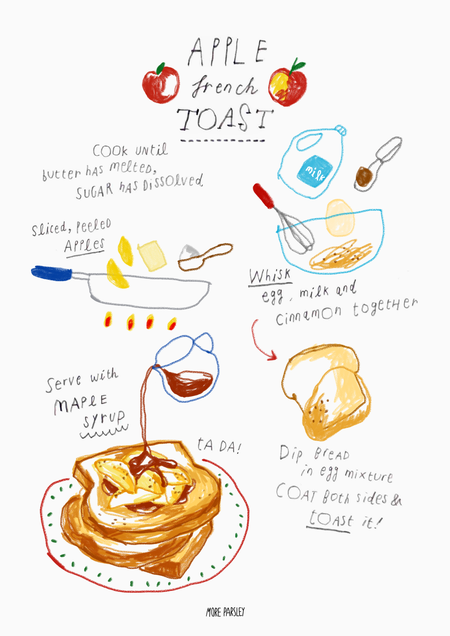 APPLE
french
TOAST
COOK until
butter has melted,
SUGAR has DISSOLVED.
Sliced, peeled
Apples
milk
Whisk
egg, milk and
cinnamon together
Serve with
MAPLE
syrup
tA DA!
Dip BREAD
in egg mixture
COAT Both sides &
tOAst it!
MORE PARSLEY